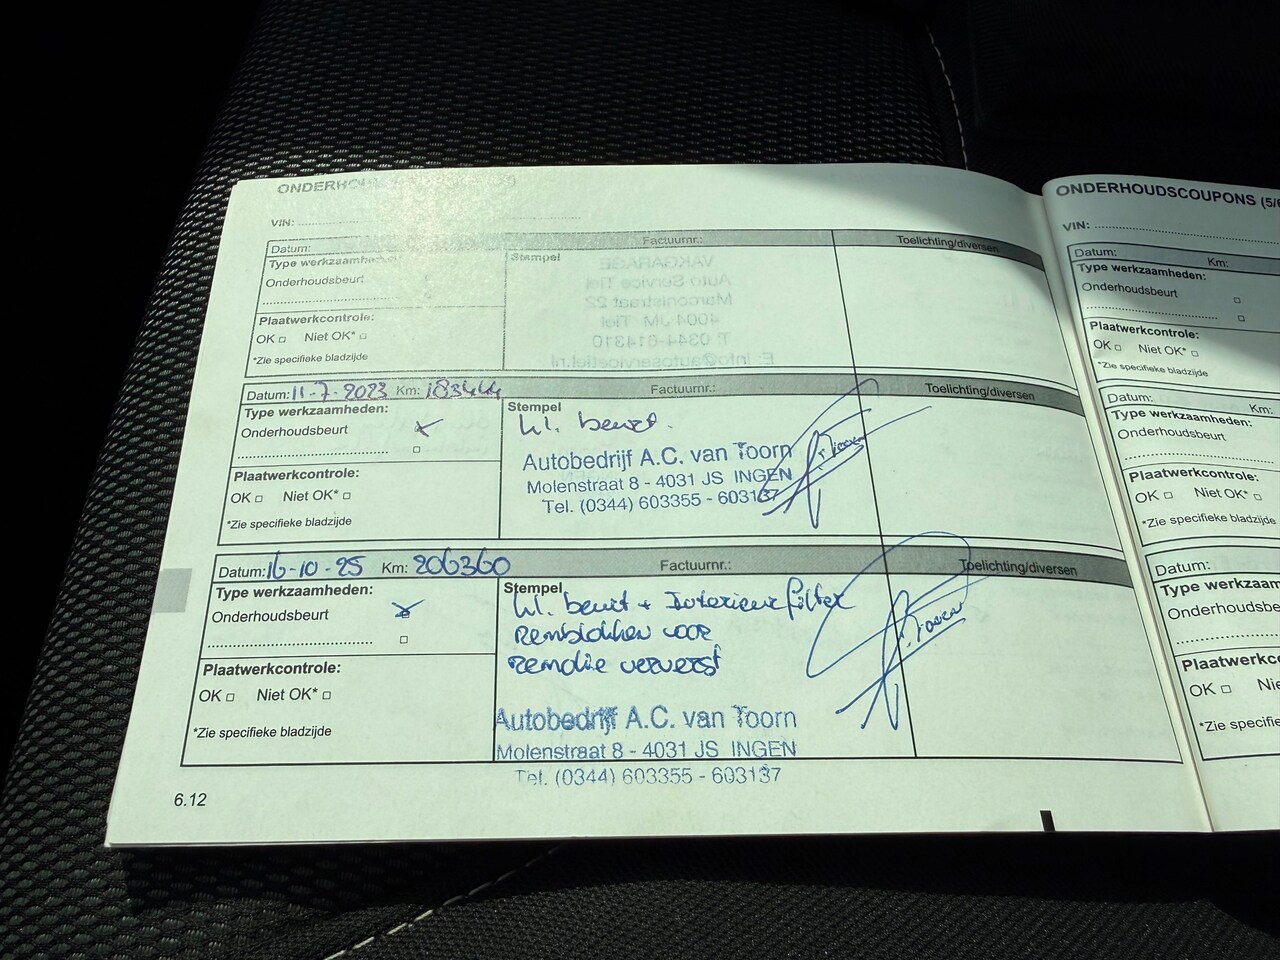 ONDERH
VIN:
Datum: Factuurnr.: Toelichting/diversen
Type werkzaamheden:
Onderhoudsbeurt
Stempel
VAKGARAGE
Auto Service Tiel
Marconistraat 22
4004 JM Tiel
T: 0344-614310
E: info@autoservicetiel.nl
Plaatwerkcontrole:
OK □ Niet OK* □
*Zie specifieke bladzijde
Datum: 11-7-2023 Km: 183444 Factuurnr.: Toelichting/diversen
Type werkzaamheden:
Onderhoudsbeurt
Stempel
kl. beurt.
Autobedrijf A.C. van Toorn
Molenstraat 8 - 4031 JS INGEN
Tel. (0344) 603355 - 603137
Plaatwerkcontrole:
OK □ Niet OK* □
*Zie specifieke bladzijde
Datum: 16-10-25 Km: 206360 Factuurnr.: Toelichting/diversen
Type werkzaamheden:
Onderhoudsbeurt
Stempel
kl. beurt + Interieurfilter
Remblokken voor
remolie ververst
Autobedrijf A.C. van Toorn
Molenstraat 8 - 4031 JS INGEN
Tel. (0344) 603355 - 603137
Plaatwerkcontrole:
OK □ Niet OK* □
*Zie specifieke bladzijde
6.12
ONDERHOUDSCOUPONS (5/6
VIN:
Datum: Km:
Type werkzaamheden:
Onderhoudsbeurt
Plaatwerkcontrole:
OK □ Niet OK* □
*Zie specifieke bladzijde
Datum: Km:
Type werkzaamheden:
Onderhoudsbeurt
Plaatwerkcontrole:
OK □ Niet OK* □
*Zie specifieke bladzijde
Datum:
Type werkzaam
Onderhoudsbe
Plaatwerkc
OK □ Nie
*Zie specifie